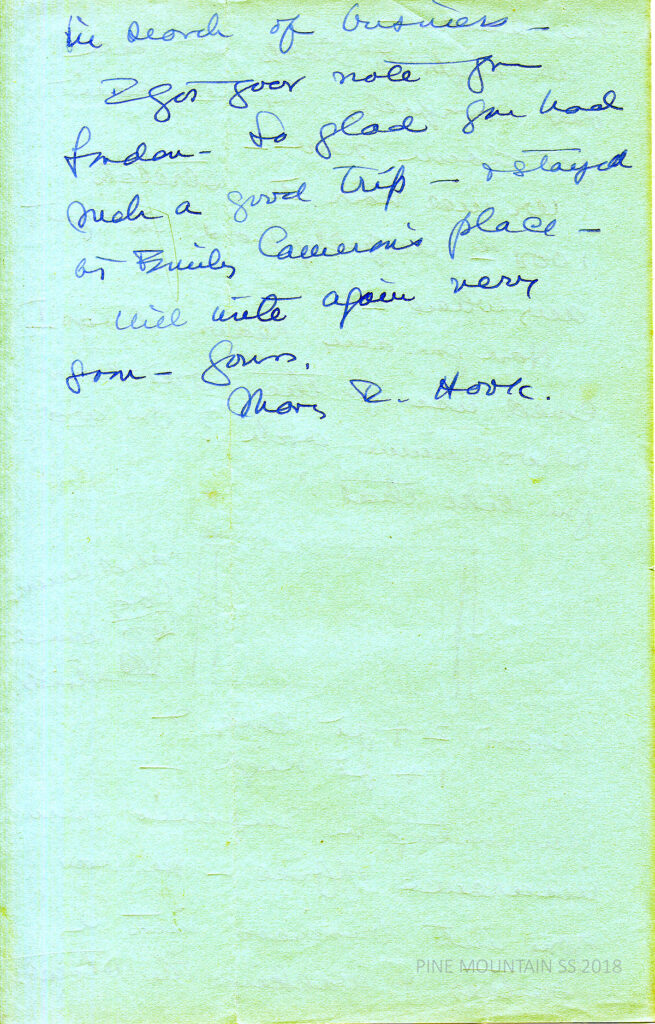 in search of business –
I got your note from
London – So glad you had
such a good trip – & stayed
at Emily Cameron's place –
Will write again very
soon – Yours,
Mary R. Hook.
PINE MOUNTAIN SS 2018